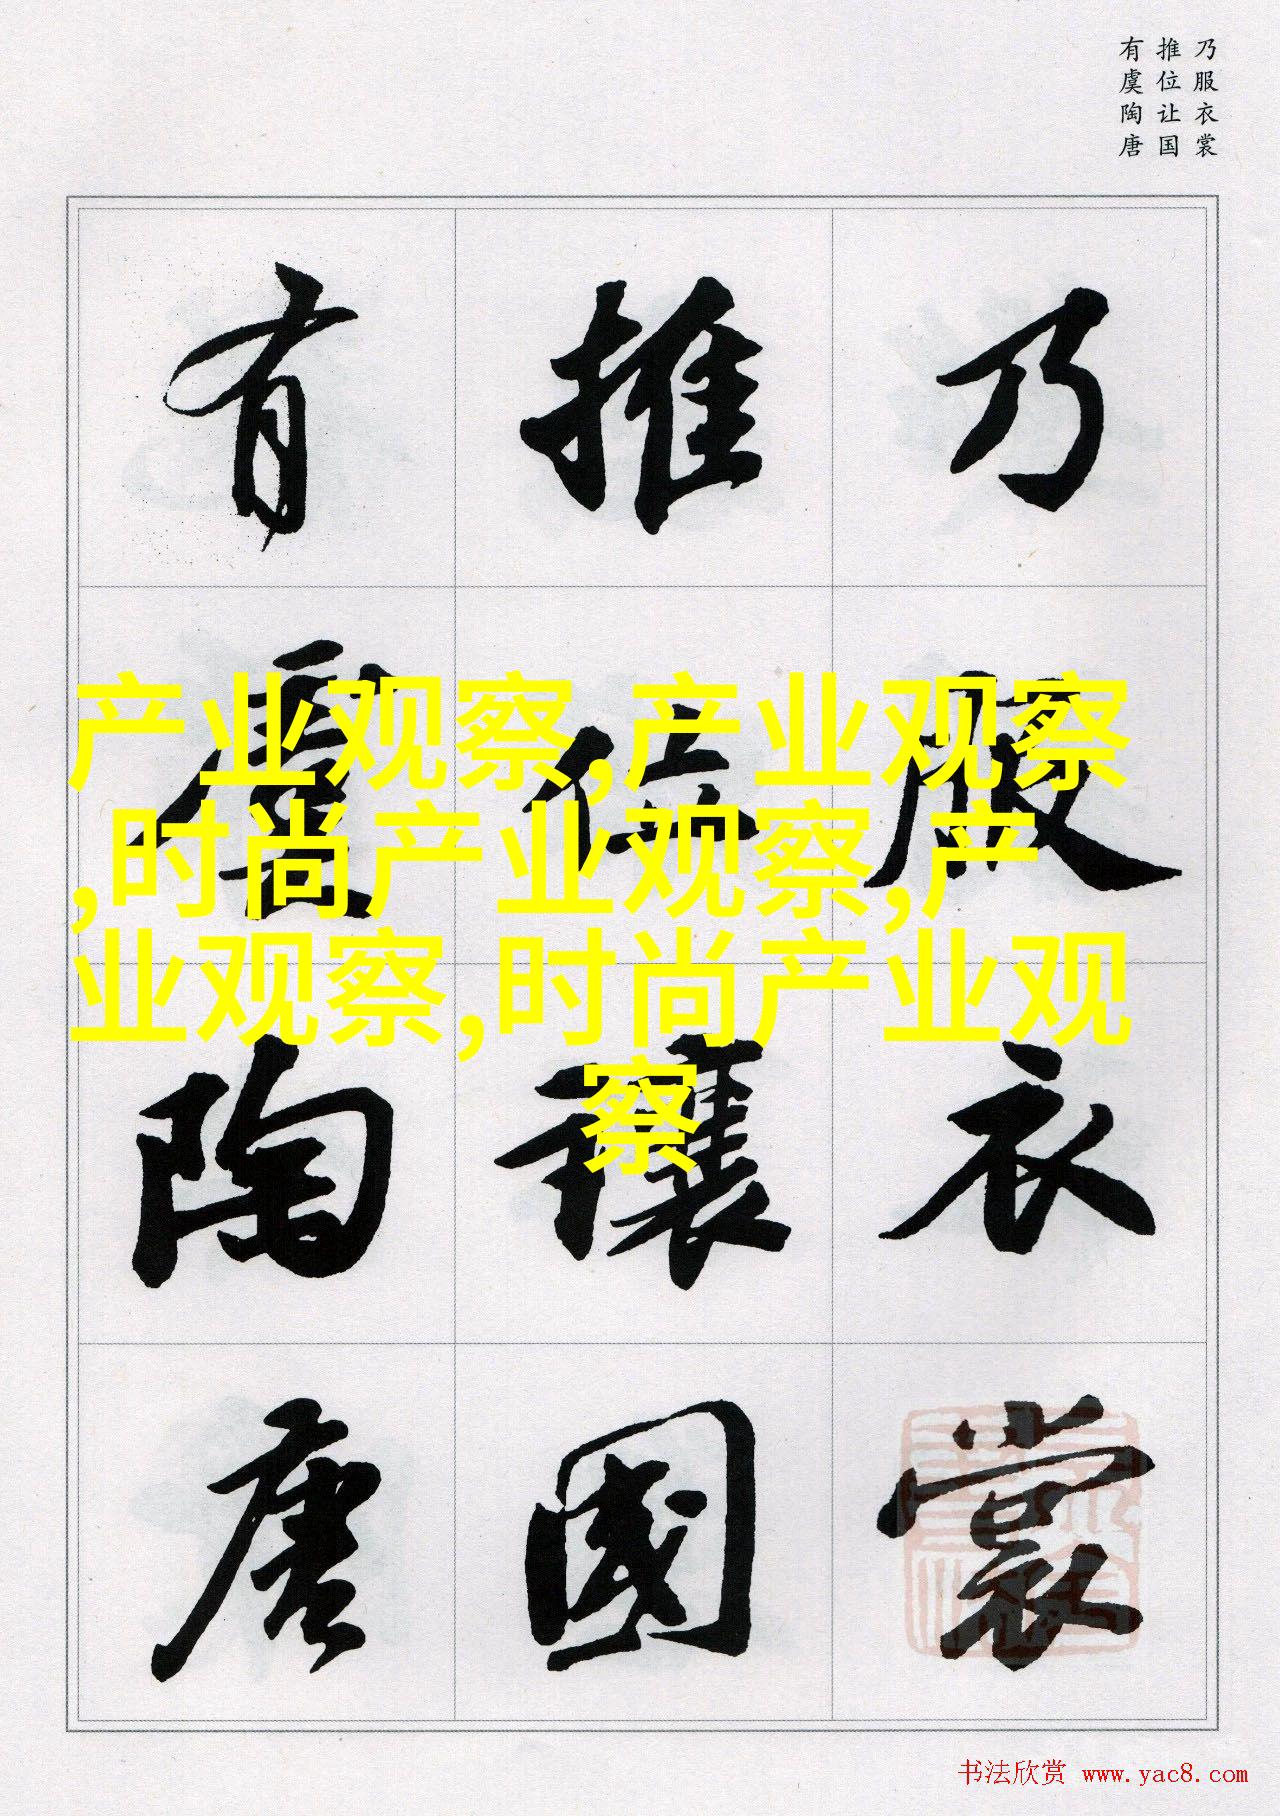 乃服衣裳
推位让国
有虞陶唐
乃服衣裳
推位讓國
有虞陶唐
产业观察,产业观察
,时尚产业观察,产
业观察,时尚产业观
察
书法欣赏 www.yac8.com